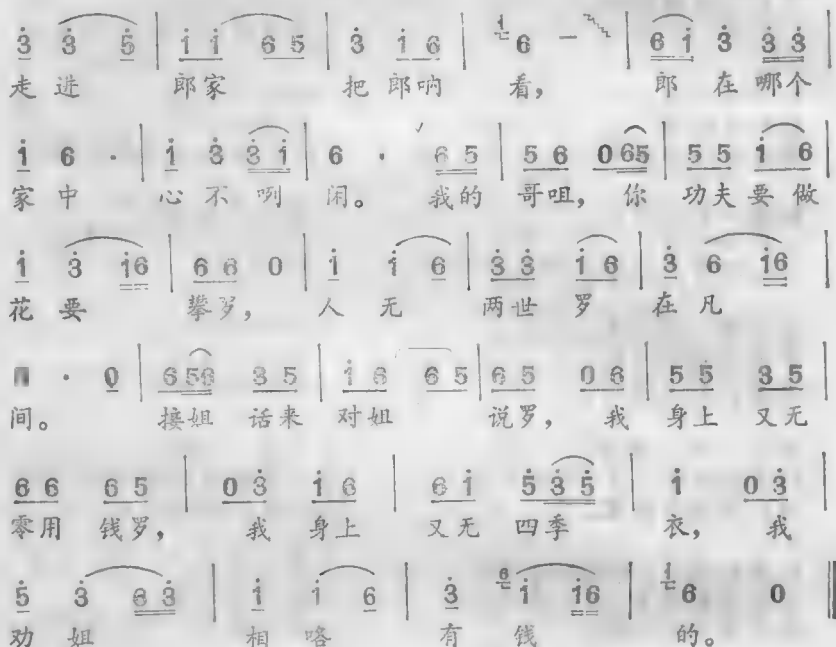 3 3 5 | 1 1 6 5 | 3 1 6 | 1 6 - | 6 1 3 3 3 |
走进 郎家 把郎响 看, 郎在哪个
1 6 · | 1 3 3 1 | 6 · 6 5 | 5 6 0 65 | 5 5 1 6 |
家中 心不咧 闲。 我的 哥咀, 你 功夫要做
1 3 16 | 6 6 0 | 1 1 6 | 3 3 1 6 | 3 6 16 |
花要 攀罗, 人无 两世罗 在凡
· 0 | 656 3 5 | 1 6 6 5 | 6 5 0 6 | 5 5 3 5 |
间。 接姐话来 对姐 说罗, 我 身上又无
6 6 6 5 | 0 3 1 6 | 6 1 5 3 5 | 1 0 3 |
零用钱罗, 我身上 又无四季 衣, 我
5 3 6 3 | 1 1 6 | 3 6 1 16 | 1 6 0 ‖
劝姐 相咯 有钱 的。